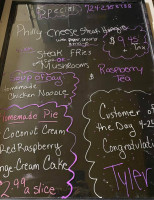 Specials 724-238-8788
Philly Cheese Steak Burger
$9.95
Steak Fries
tax
Mushrooms
Raspberry
Tea
Soup of Day
Homemade
Chicken Noodle
Homemade Pie
Coconut Cream
Red Raspberry
Orange Cream Cake
2.99 a slice
Customer
of the Day
Congratulati
Tyler